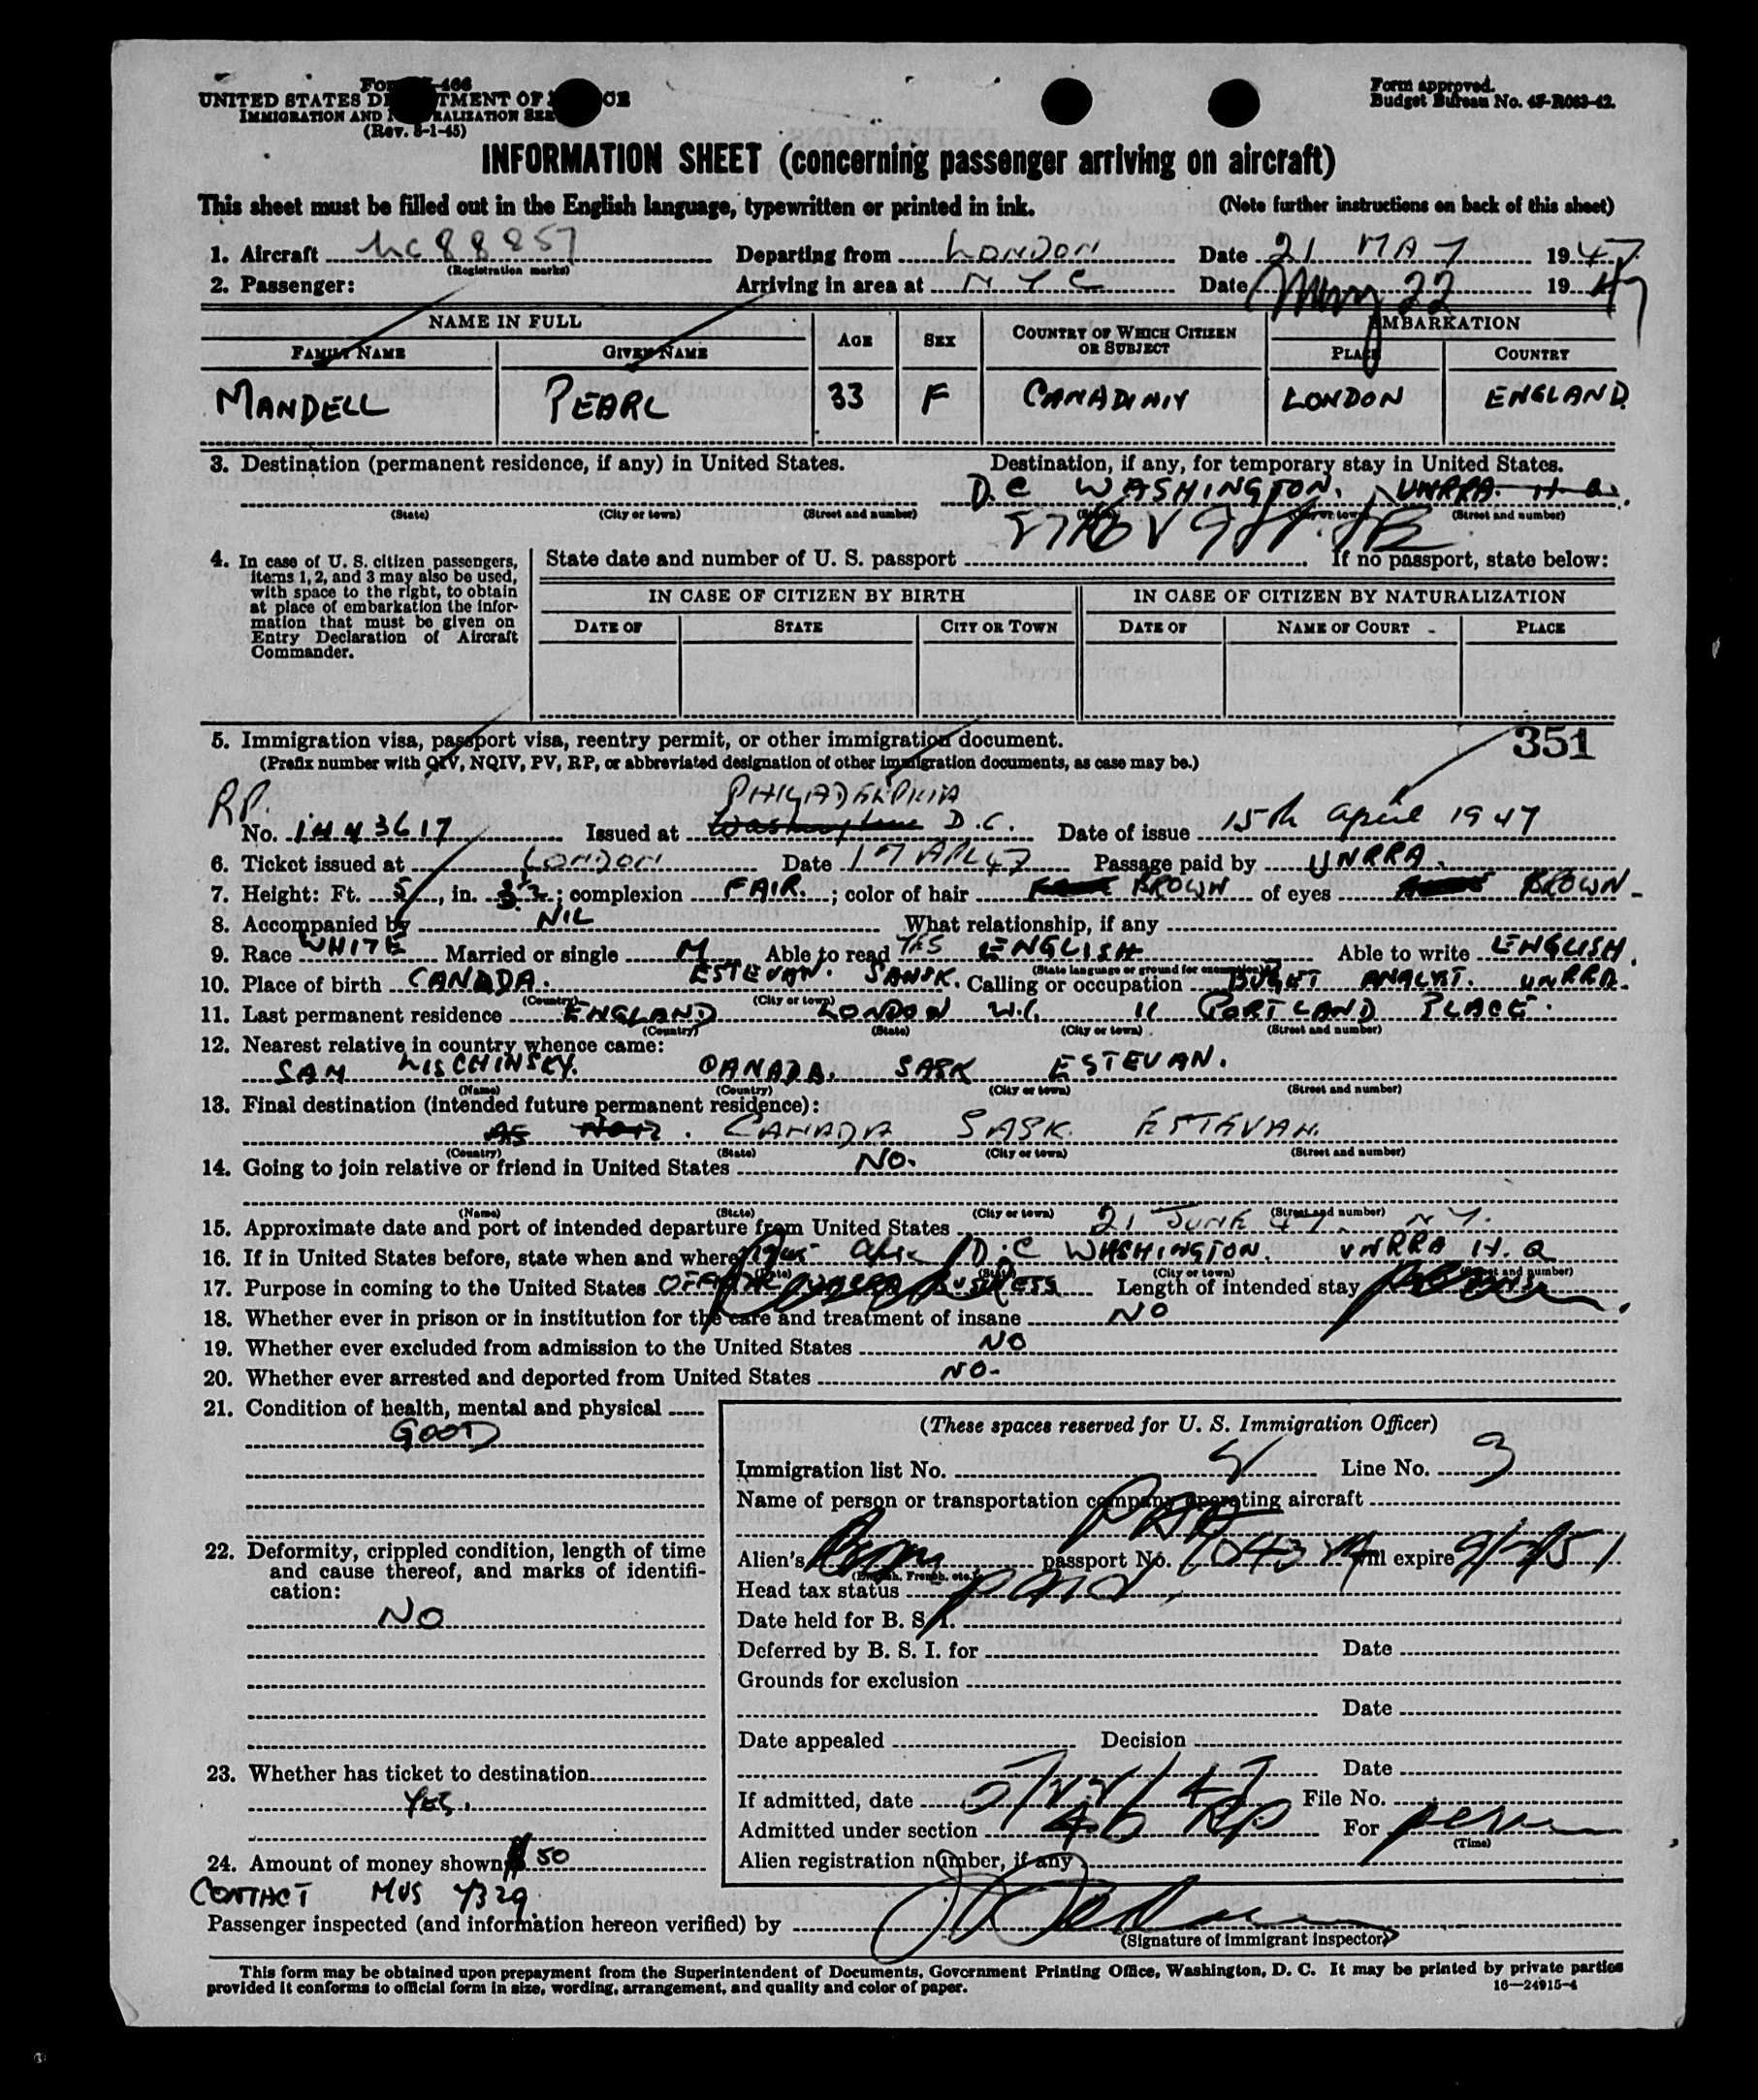 UNITED STATES DEPARTMENT OF JUSTICE
IMMIGRATION AND NATURALIZATION SER
(Rev. 8-1-45)
Form approved.
Budget Bureau No. 43-R083-42.
INFORMATION SHEET (concerning passenger arriving on aircraft)
This sheet must be filled out in the English language, typewritten or printed in ink. (Note further instructions on back of this sheet)
1. Aircraft NC 88857 Departing from LONDON Date 21 MAY 1947
(Registration marks)
2. Passenger: Arriving in area at NYC Date May 22 1947
NAME IN FULL AGE SEX COUNTRY OF WHICH CITIZEN OR SUBJECT EMBARKATION
FAMILY NAME GIVEN NAME PLACE COUNTRY
MANDELL PEARL 33 F LONDON ENGLAND
3. Destination (permanent residence, if any) in United States. Destination, if any, for temporary stay in United States.
D.C WASHINGTON. UNRRA. H Q.
(State) (City or town) (Street and number) (Street and number)
4. In case of U. S. citizen passengers, items 1, 2, and 3 may also be used, with space to the right, to obtain at place of embarkation the information that must be given on Entry Declaration of Aircraft Commander.
State date and number of U. S. passport If no passport, state below:
IN CASE OF CITIZEN BY BIRTH IN CASE OF CITIZEN BY NATURALIZATION
DATE OF STATE CITY OR TOWN DATE OF NAME OF COURT PLACE
351
5. Immigration visa, passport visa, reentry permit, or other immigration document.
(Prefix number with QIV, NQIV, PV, RP, or abbreviated designation of other immigration documents, as case may be.)
RP. PHILADELPHIA
No. 1443617 Issued at Washington D.C. Date of issue 15th April 1947
6. Ticket issued at LONDON Date 17 APL 47 Passage paid by UNRRA.
7. Height: Ft. 5, in. 3½; complexion FAIR.; color of hair BROWN of eyes BROWN
8. Accompanied by NIL What relationship, if any
9. Race WHITE Married or single M Able to read YES ENGLISH Able to write ENGLISH.
(State language or ground for exemption)
10. Place of birth CANADA. ESTEVAN. SASK. Calling or occupation BUGET ANALYST. UNRRA.
(Country) (City or town)
11. Last permanent residence ENGLAND LONDON W.1. 11 PORTLAND PLACE.
(Country) (State) (City or town) (Street and number)
12. Nearest relative in country whence came:
SAM LISCHINSKY. CANADA. SASK ESTEVAN.
(Name) (Country) (City or town) (Street and number)
13. Final destination (intended future permanent residence):
CANADA SASK. ESTEVAN.
(Country) (State) (City or town) (Street and number)
14. Going to join relative or friend in United States NO.
(Name) (State) (City or town) (Street and number)
15. Approximate date and port of intended departure from United States 21 JUNE 47. N.Y.
16. If in United States before, state when and where D.C WASHINGTON. UNRRA H.Q
(State) (City or town) (Street and number)
17. Purpose in coming to the United States OFFICIAL UNRRA BUSINESS Length of intended stay
18. Whether ever in prison or in institution for the care and treatment of insane NO
19. Whether ever excluded from admission to the United States NO
20. Whether ever arrested and deported from United States NO-
21. Condition of health, mental and physical
GOOD
22. Deformity, crippled condition, length of time and cause thereof, and marks of identification:
NO
23. Whether has ticket to destination
YES.
24. Amount of money shown $50
CONTACT MUS 4329.
(These spaces reserved for U. S. Immigration Officer)
Immigration list No. Line No. 3
Name of person or transportation company operating aircraft
PAA
Alien's passport No. will expire
(English, French, etc.)
Head tax status
Date held for B. S. I.
Deferred by B. S. I. for Date
Grounds for exclusion
Date
Date appealed Decision
Date
If admitted, date 5/22/47 File No.
Admitted under section 4b RP For perm
(Time)
Alien registration number, if any
Passenger inspected (and information hereon verified) by
(Signature of immigrant inspector)
This form may be obtained upon prepayment from the Superintendent of Documents, Government Printing Office, Washington, D. C. It may be printed by private parties
provided it conforms to official form in size, wording, arrangement, and quality and color of paper. 16—24915-4